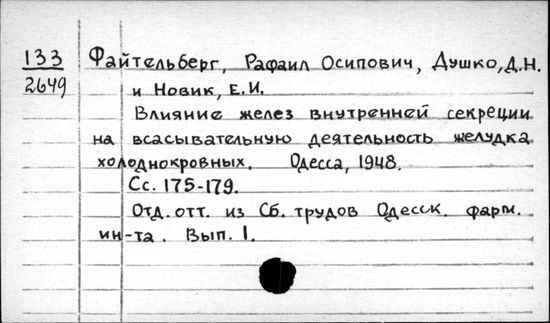 133
2649
Файтельберг, Рафаил Осипович, Душко, Д.Н.
и Новик, Е.И.
Влияние желез внутренней секреции
на всасывательную деятельность желудка
холоднокровных. Одесса, 1948.
Сс. 175-179.
Отд. отт. из Сб. трудов Одесск. фарм.
ин-та. Вып. 1.